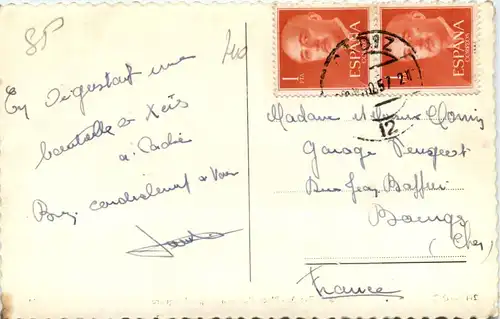 SP
En dégustant une
bouteille de Xérès
à Cadix
Bien cordialement à vous
1
PTA
ESPAÑA
CORREOS
1
ESPAÑA
CORREOS
CADIZ
57
12
Madame et Monsieur
Garage Peugeot
Rue Jean Baffier
Bourges
(Cher)
France